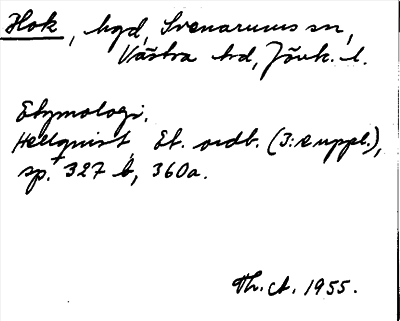 Hok, hgd, Svenarums sn,
Västra hd, Jönk. l.
Etymologi.
Hellquist, Et. ordb. (3:e uppl.),
sp. 327 b, 360a.
Th. A. 1955.